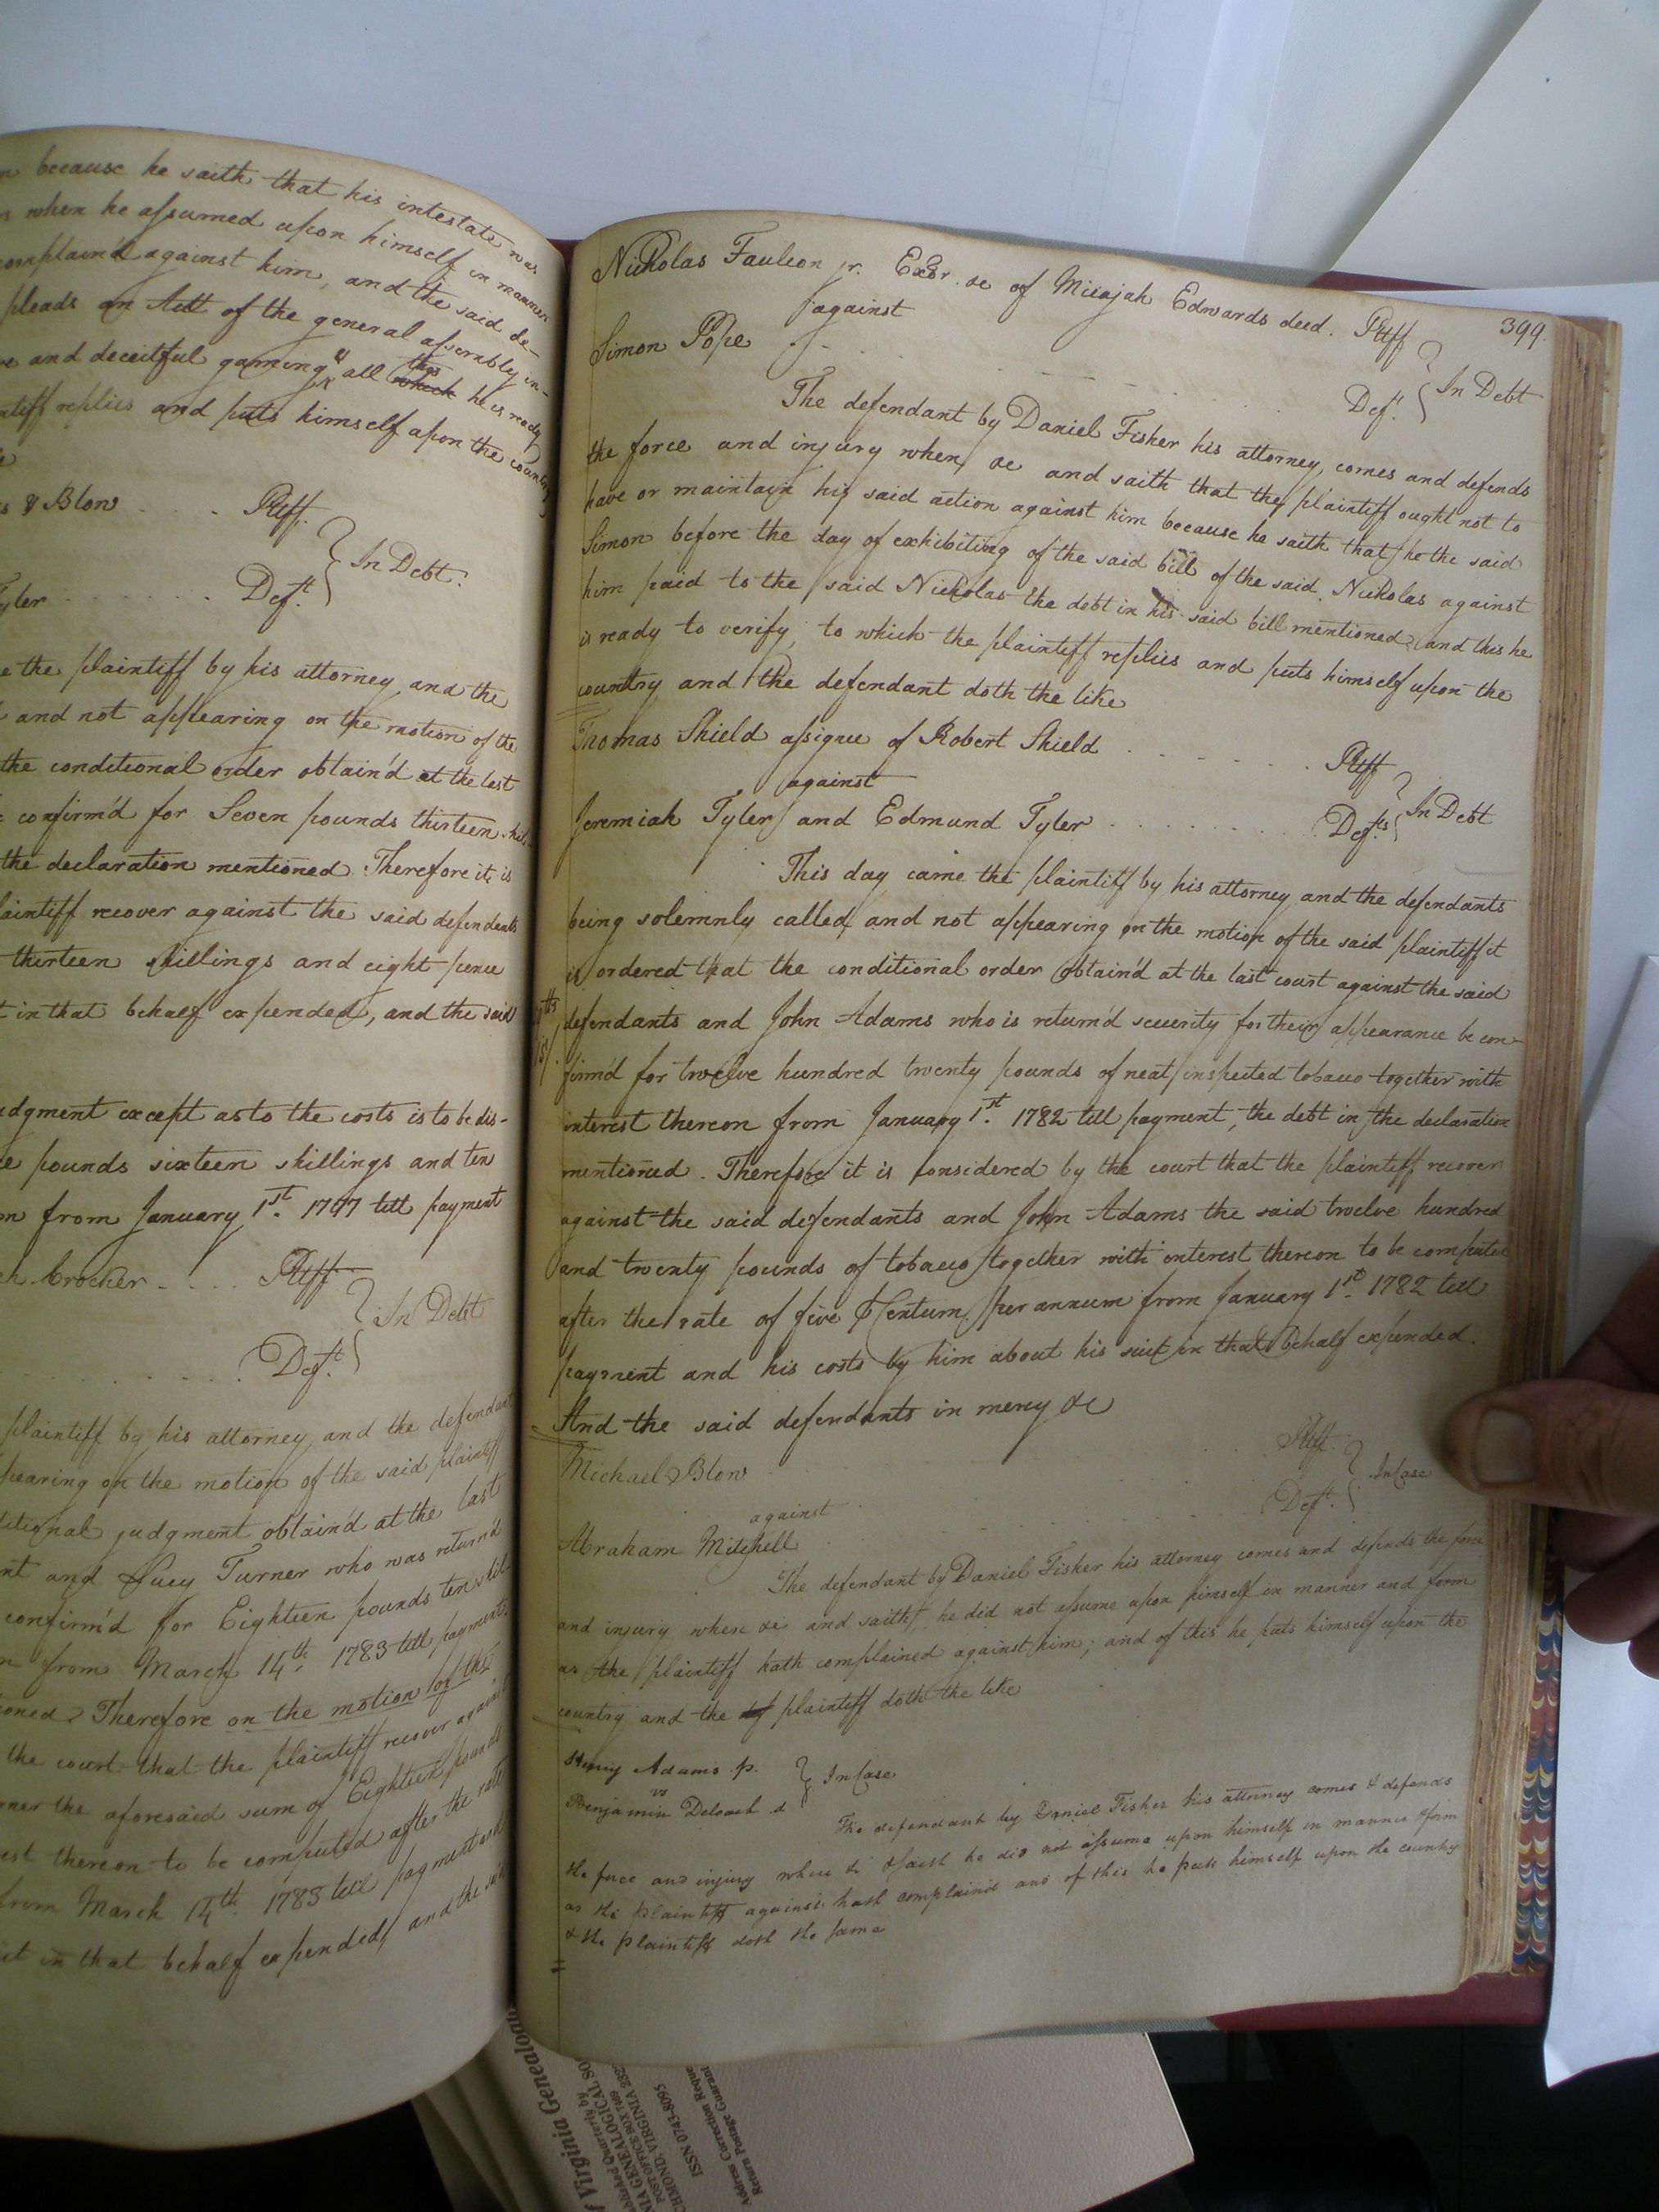 because he saith that his intestate was
when he assumed upon himself in manner
complain'd against him, and the said de-
pleads an Act of the general assembly in-
and deceitful gaming" all this which he is ready
replies and puts himself upon the country
& Blow . . . . Pltff.
In Debt.
Tyler . . . . . . . Deft.
the plaintiff by his attorney, and the
and not appearing on the motion of the
the conditional order obtain'd at the last
confirm'd for Seven pounds thirteen shil-
the declaration mentioned. Therefore it is
plaintiff recover against the said defendants
thirteen shillings and eight pence
in that behalf expended, and the said
judgment except as to the costs is to be dis-
pounds sixteen shillings and ten
from January 1st. 1777 till payment
Crocker . . . . Pltff
In Debt
Deft.
plaintiff by his attorney, and the defendant
appearing on the motion of the said plaintiff
conditional judgment obtain'd at the last
and Lucy Turner who was return'd
confirm'd for Eighteen pounds ten shil
from March 14th. 1783 till payment
Therefore on the motion of the
the court that the plaintiff recover against
the aforesaid sum of Eighteen pounds
thereon to be computed after the rate
from March 14th. 1783 till payment and
in that behalf expended, and the said
399.
Nicholas Faulcon jr. Exor. &c of Micajah Edwards decd. Pltff
against
In Debt
Simon Pope Deft.
The defendant by Daniel Fisher his attorney, comes and defends
the force and injury when &c and saith that the plaintiff ought not to
have or maintain his said action against him because he saith that he the said
Simon before the day of exhibiting of the said bill of the said Nicholas against
him paid to the said Nicholas the debt in his said bill mentioned and this he
is ready to verify, to which the plaintiff replies and puts himself upon the
country and the defendant doth the like
Thomas Shield assignee of Robert Shield . . . . . . Pltff
against
In Debt
Jeremiah Tyler and Edmund Tyler . . . . . . . . Defts.
This day came the plaintiff by his attorney and the defendants
being solemnly called, and not appearing on the motion of the said plaintiff it
is ordered that the conditional order obtain'd at the last court against the said
defendants and John Adams who is return'd security for their appearance be con-
firm'd for twelve hundred twenty pounds of neat inspected tobacco together with
interest thereon from January 1st. 1782 till payment, the debt in the declaration
mentioned. Therefore it is considered by the court that the plaintiff recover
against the said defendants and John Adams the said twelve hundred
and twenty pounds of tobacco together with interest thereon to be computed
after the rate of five ⅌ Centum per annum from January 1st. 1782 till
payment and his costs by him about his suit in that behalf expended.
And the said defendants in mercy &c
Michael Blow Pltff.
against
In Case
Abraham Mitchell Deft.
The defendant by Daniel Fisher his attorney comes and defends the force
and injury when &c and saith, he did not assume upon himself in manner and form
as the plaintiff hath complained against him; and of this he puts himself upon the
country and the df plaintiff doth the like
Henry Adams p.
vs
In Case
Benjamin Deloach d
The defendant by Daniel Fisher his attorney comes & defends
the force and injury when &c & saith he did not assume upon himself in manner & form
as the plaintiff against hath complained and of this he puts himself upon the country
& the plaintiff doth the same
Virginia Genealogi
Published Quarterly by
NIA GENEALOGICAL SO
POST OFFICE BOX 7469
CHMOND, VIRGINIA
ISSN 0743-8095
Address Correction Reque
Return Postage Guarant